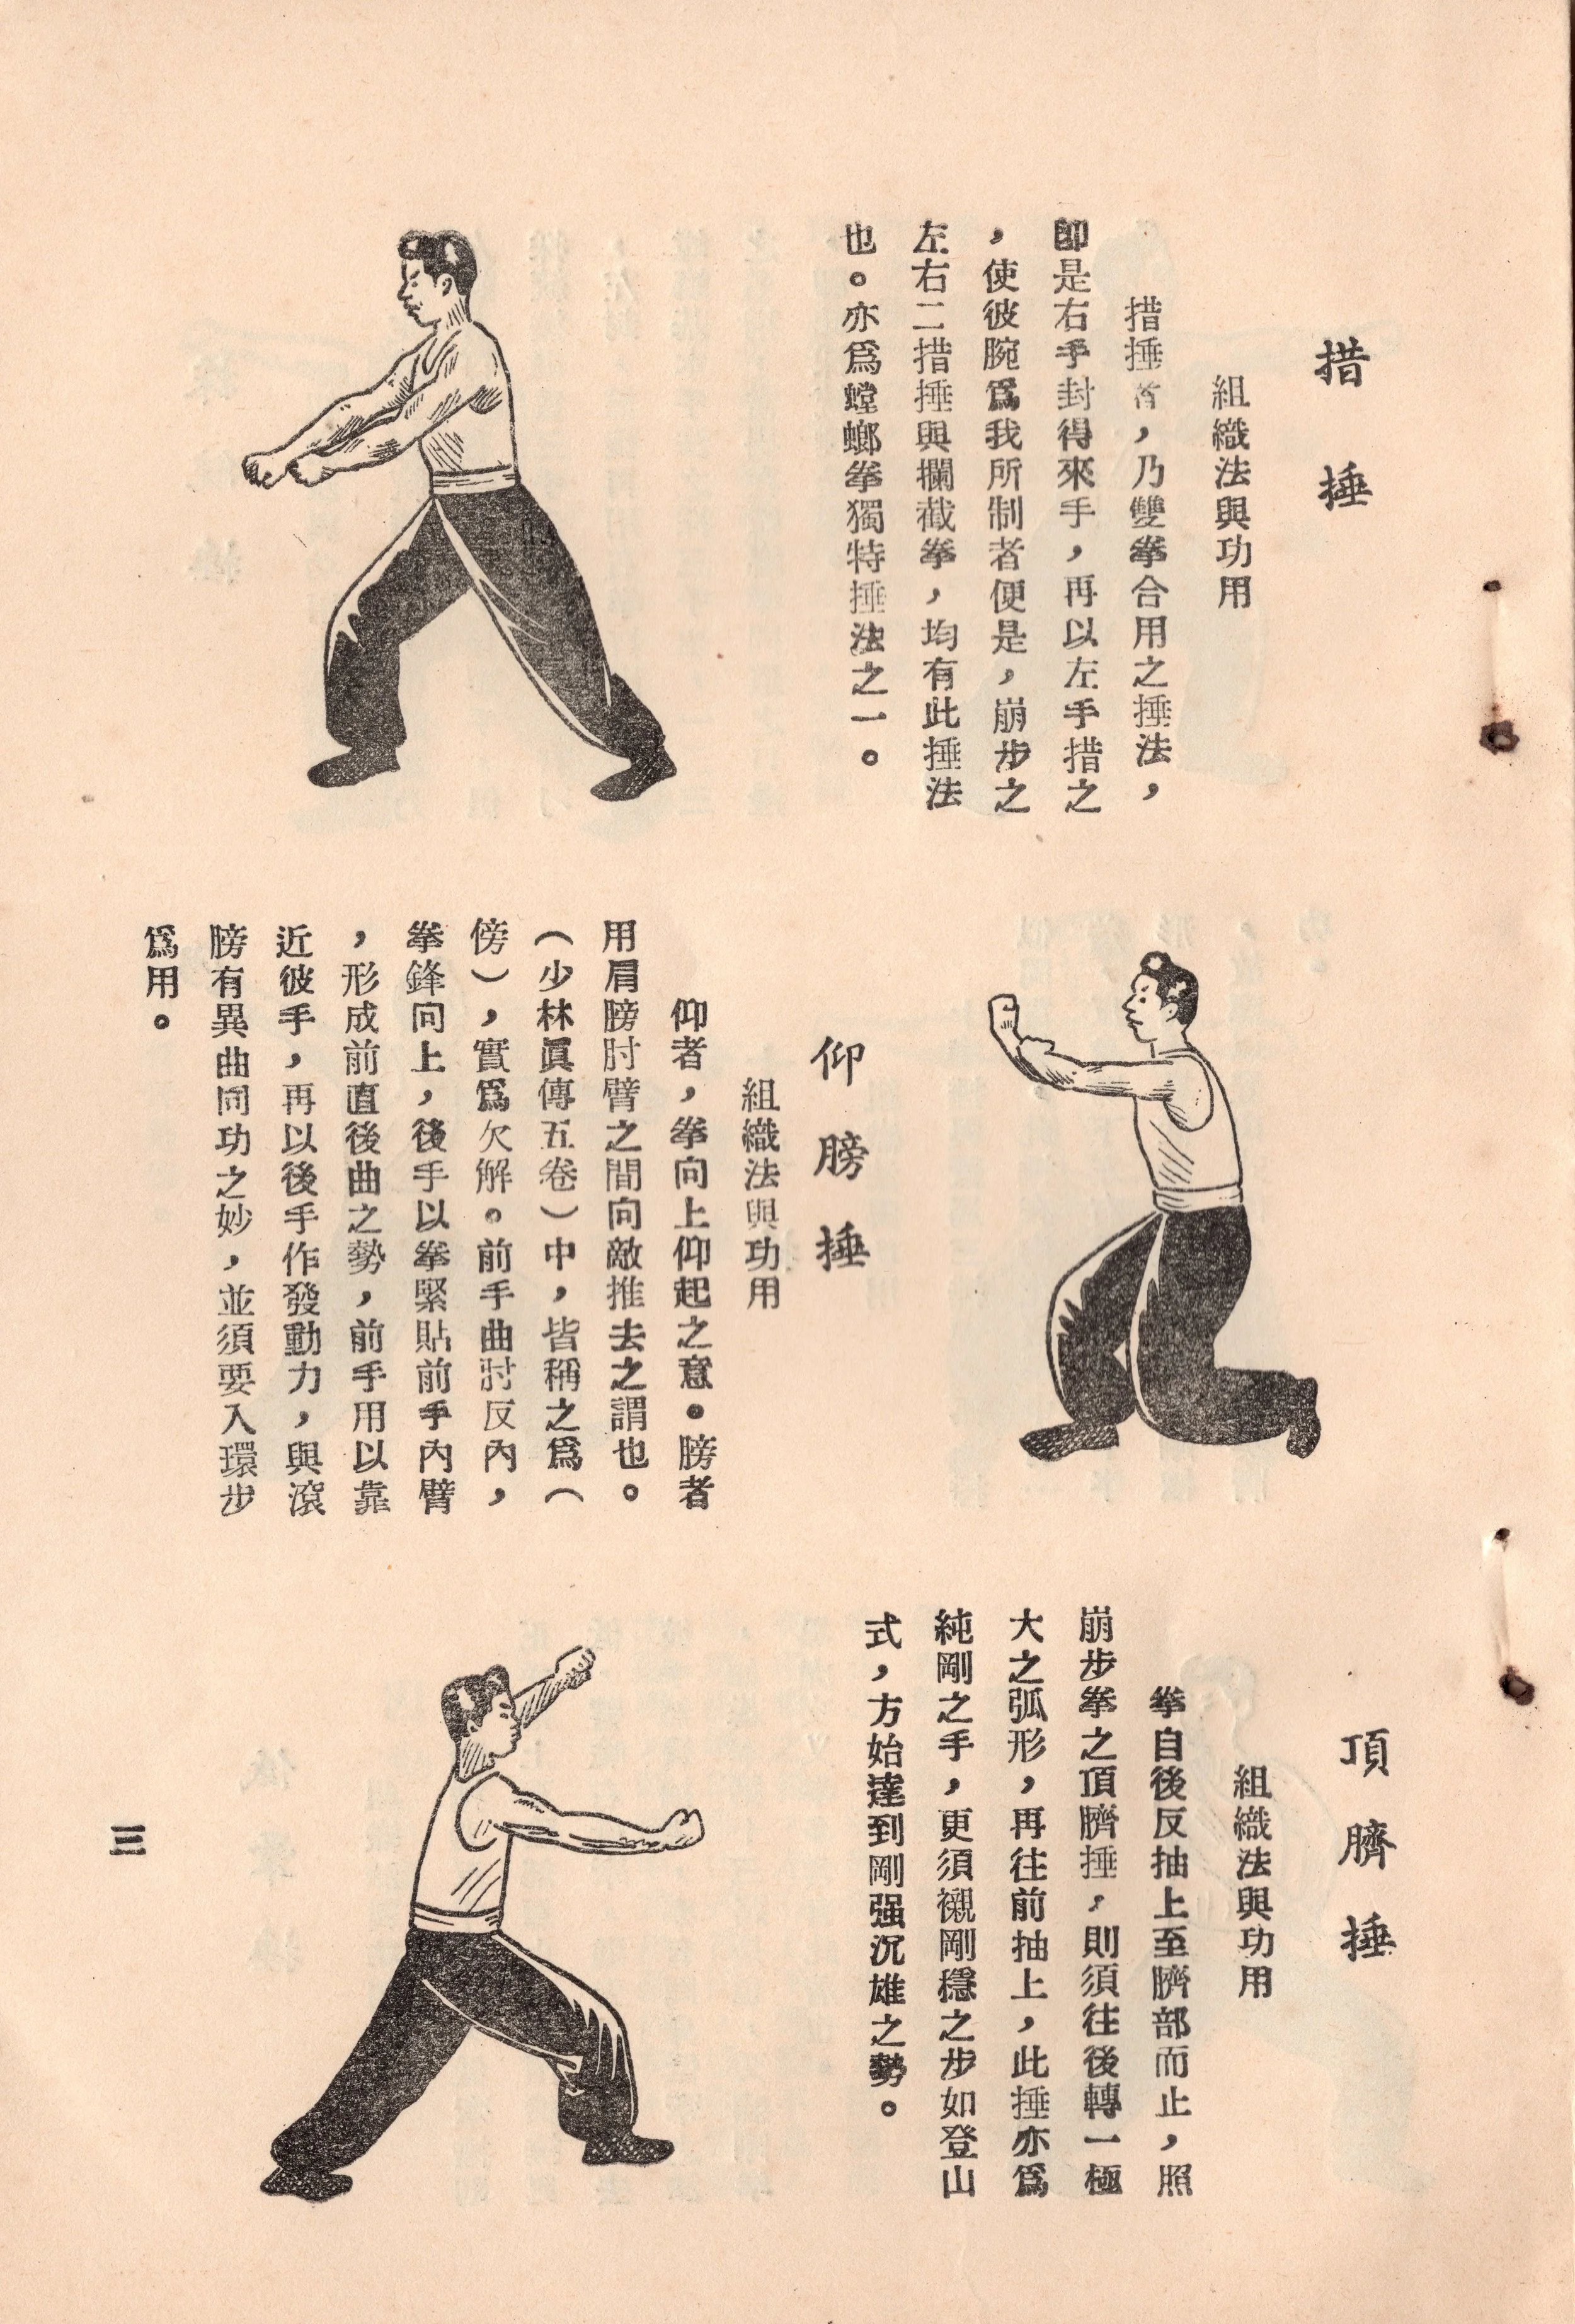 措捶
組織法與功用
措捶者，乃雙拳合用之捶法，
卽是右手封得來手，再以左手措之
，使彼腕爲我所制者便是，崩步之
左右二措捶與攔截拳，均有此捶法
也。亦爲螳螂拳獨特捶法之一。
仰膀捶
組織法與功用
仰者，拳向上仰起之意。膀者
用肩膀肘臂之間向敵推去之謂也。
（少林眞傳五卷）中，皆稱之爲（
傍），實爲欠解。前手曲肘反內，
拳鋒向上，後手以拳緊貼前手內臂
，形成前直後曲之勢，前手用以靠
近彼手，再以後手作發動力，與滾
膀有異曲同功之妙，並須要入環步
爲用。
頂臍捶
組織法與功用
拳自後反抽上至臍部而止，照
崩步拳之頂臍捶，則須往後轉一極
大之弧形，再往前抽上，此捶亦爲
純剛之手，更須襯剛穩之步如登山
式，方始達到剛强沉雄之勢。
三